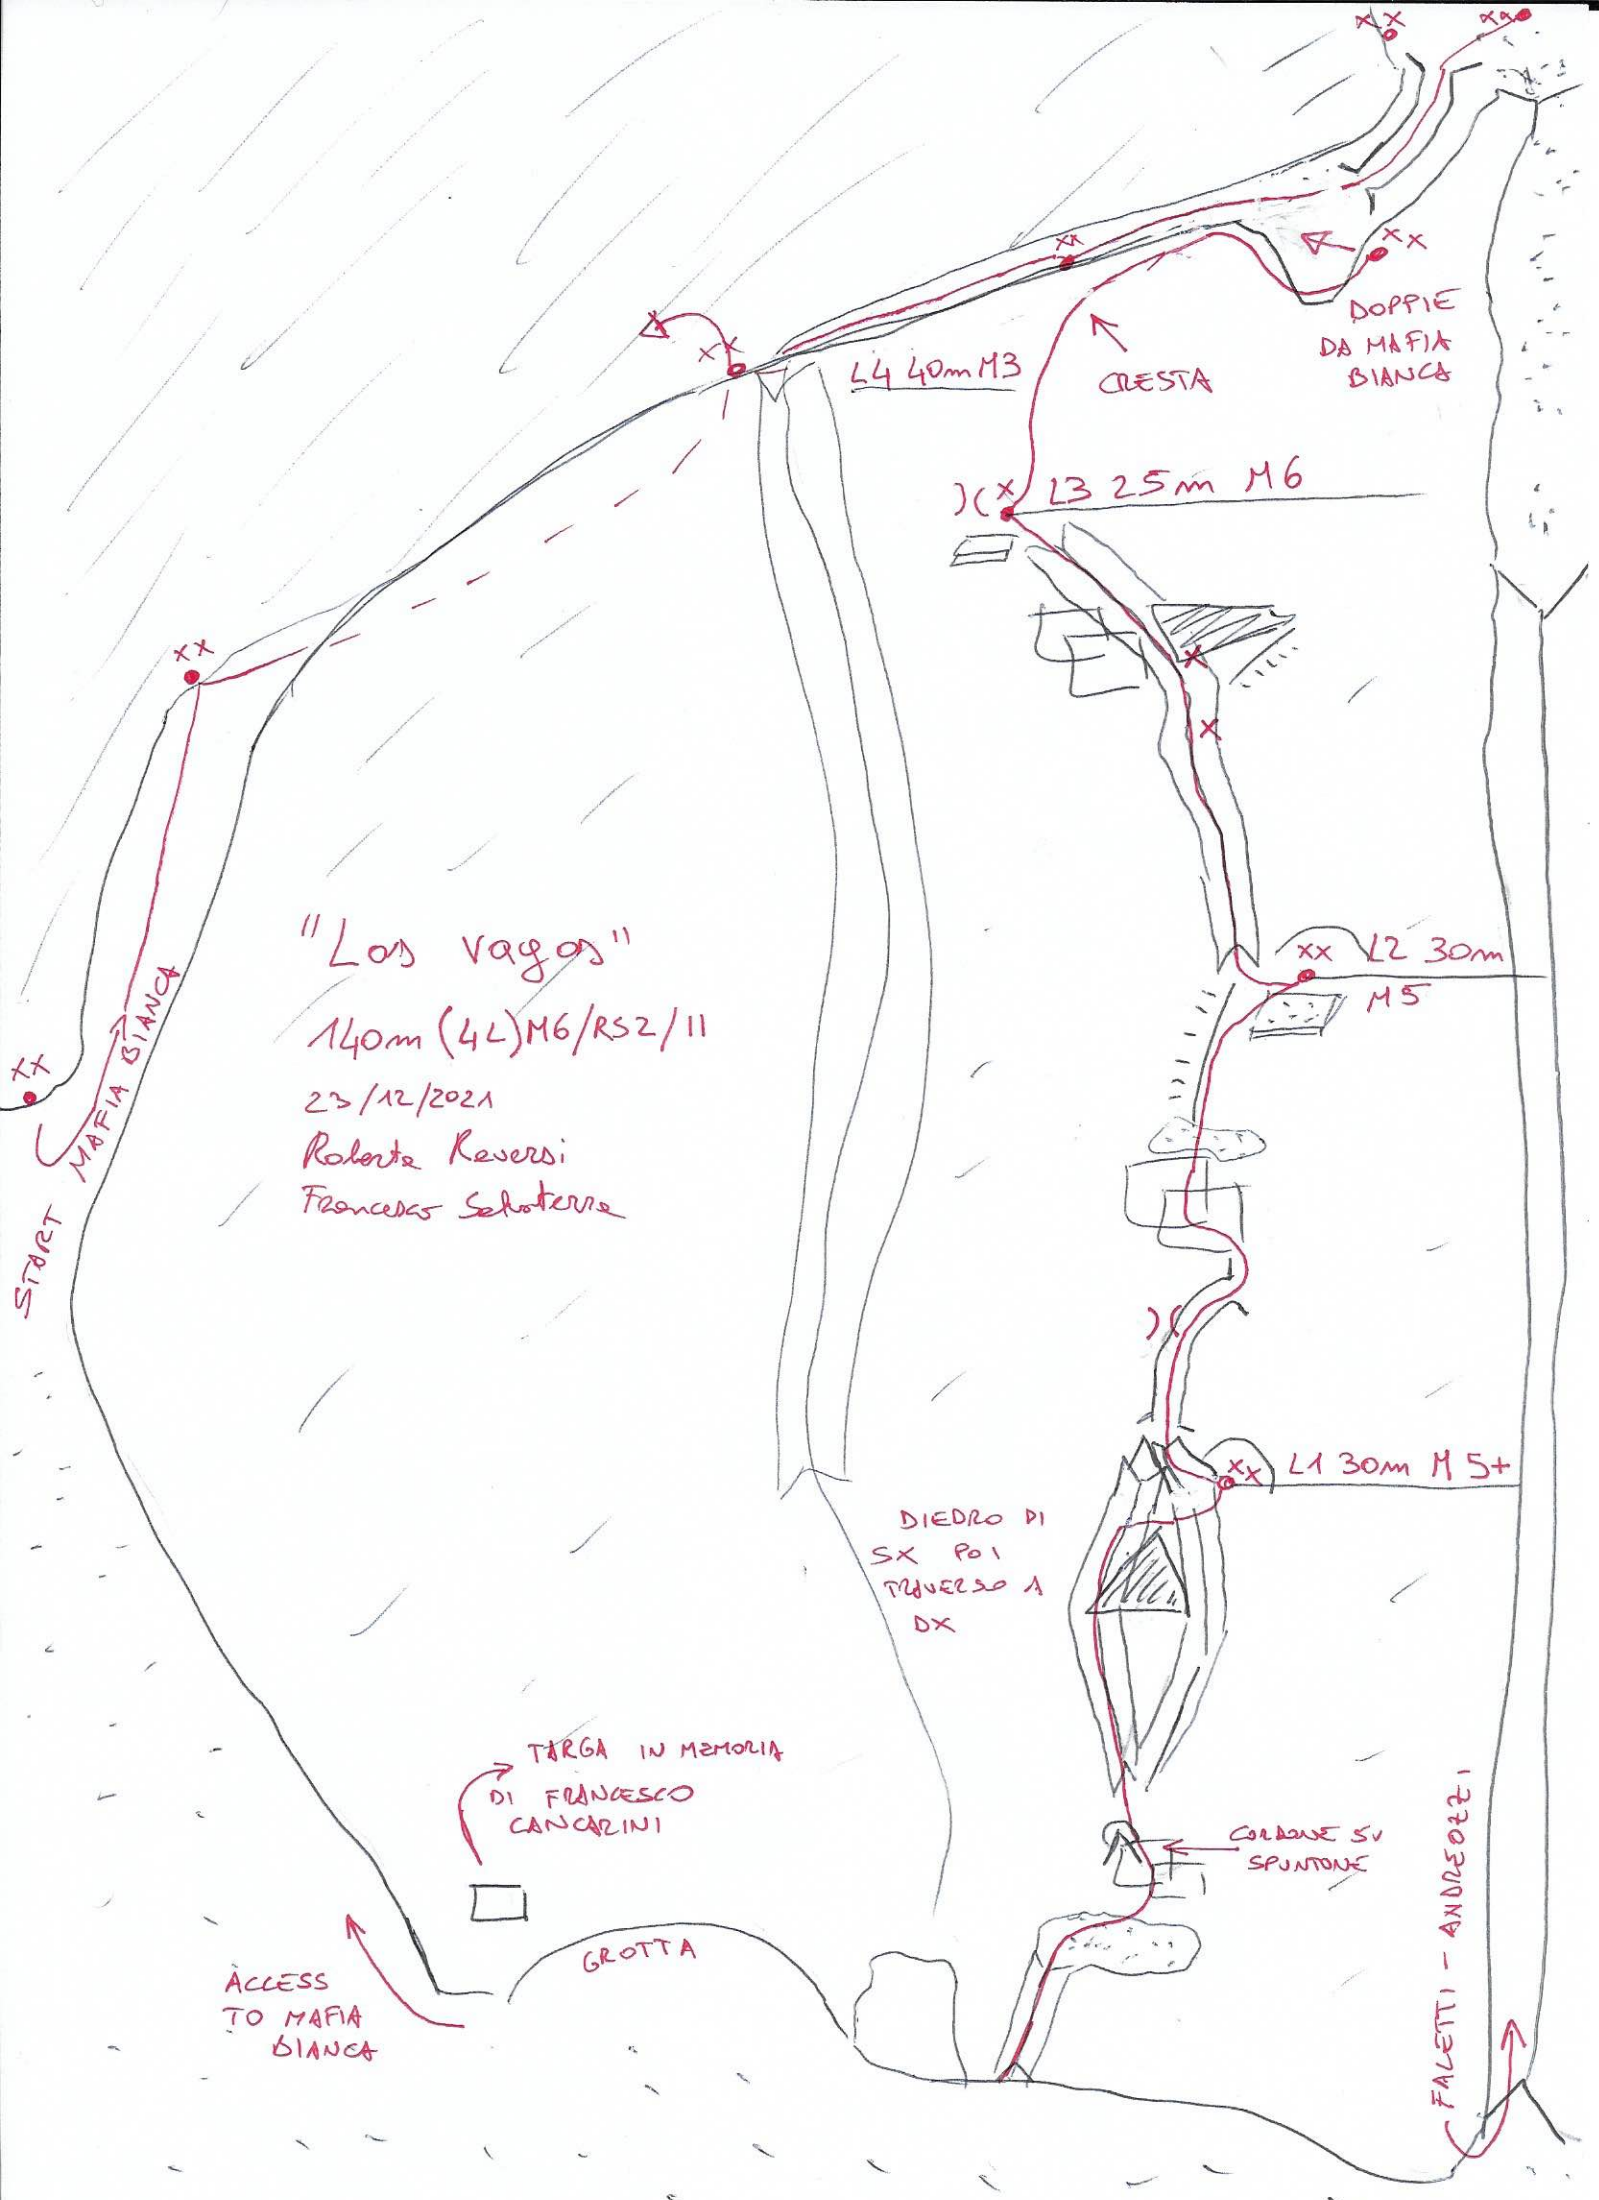 xx
xx
xx
xx
DOPPIE
DA MAFIA
BIANCA
xx
L4 40m M3
CRESTA
)( x L3 25m M6
xx
x
x
"Los vagos"
140m (4L) M6/RS2/II
23/12/2021
Roberta Reversi
Francesco Salvaterra
xx L2 30m
M5
xx
START MAFIA BIANCA
)(
xx L1 30m M5+
DIEDRO DI
SX POI
TRAVERSO A
DX
TARGA IN MEMORIA
DI FRANCESCO
CANCARINI
CORDONE SU
SPUNTONE
GROTTA
ACCESS
TO MAFIA
BIANCA
FALETTI - ANDREOZZI